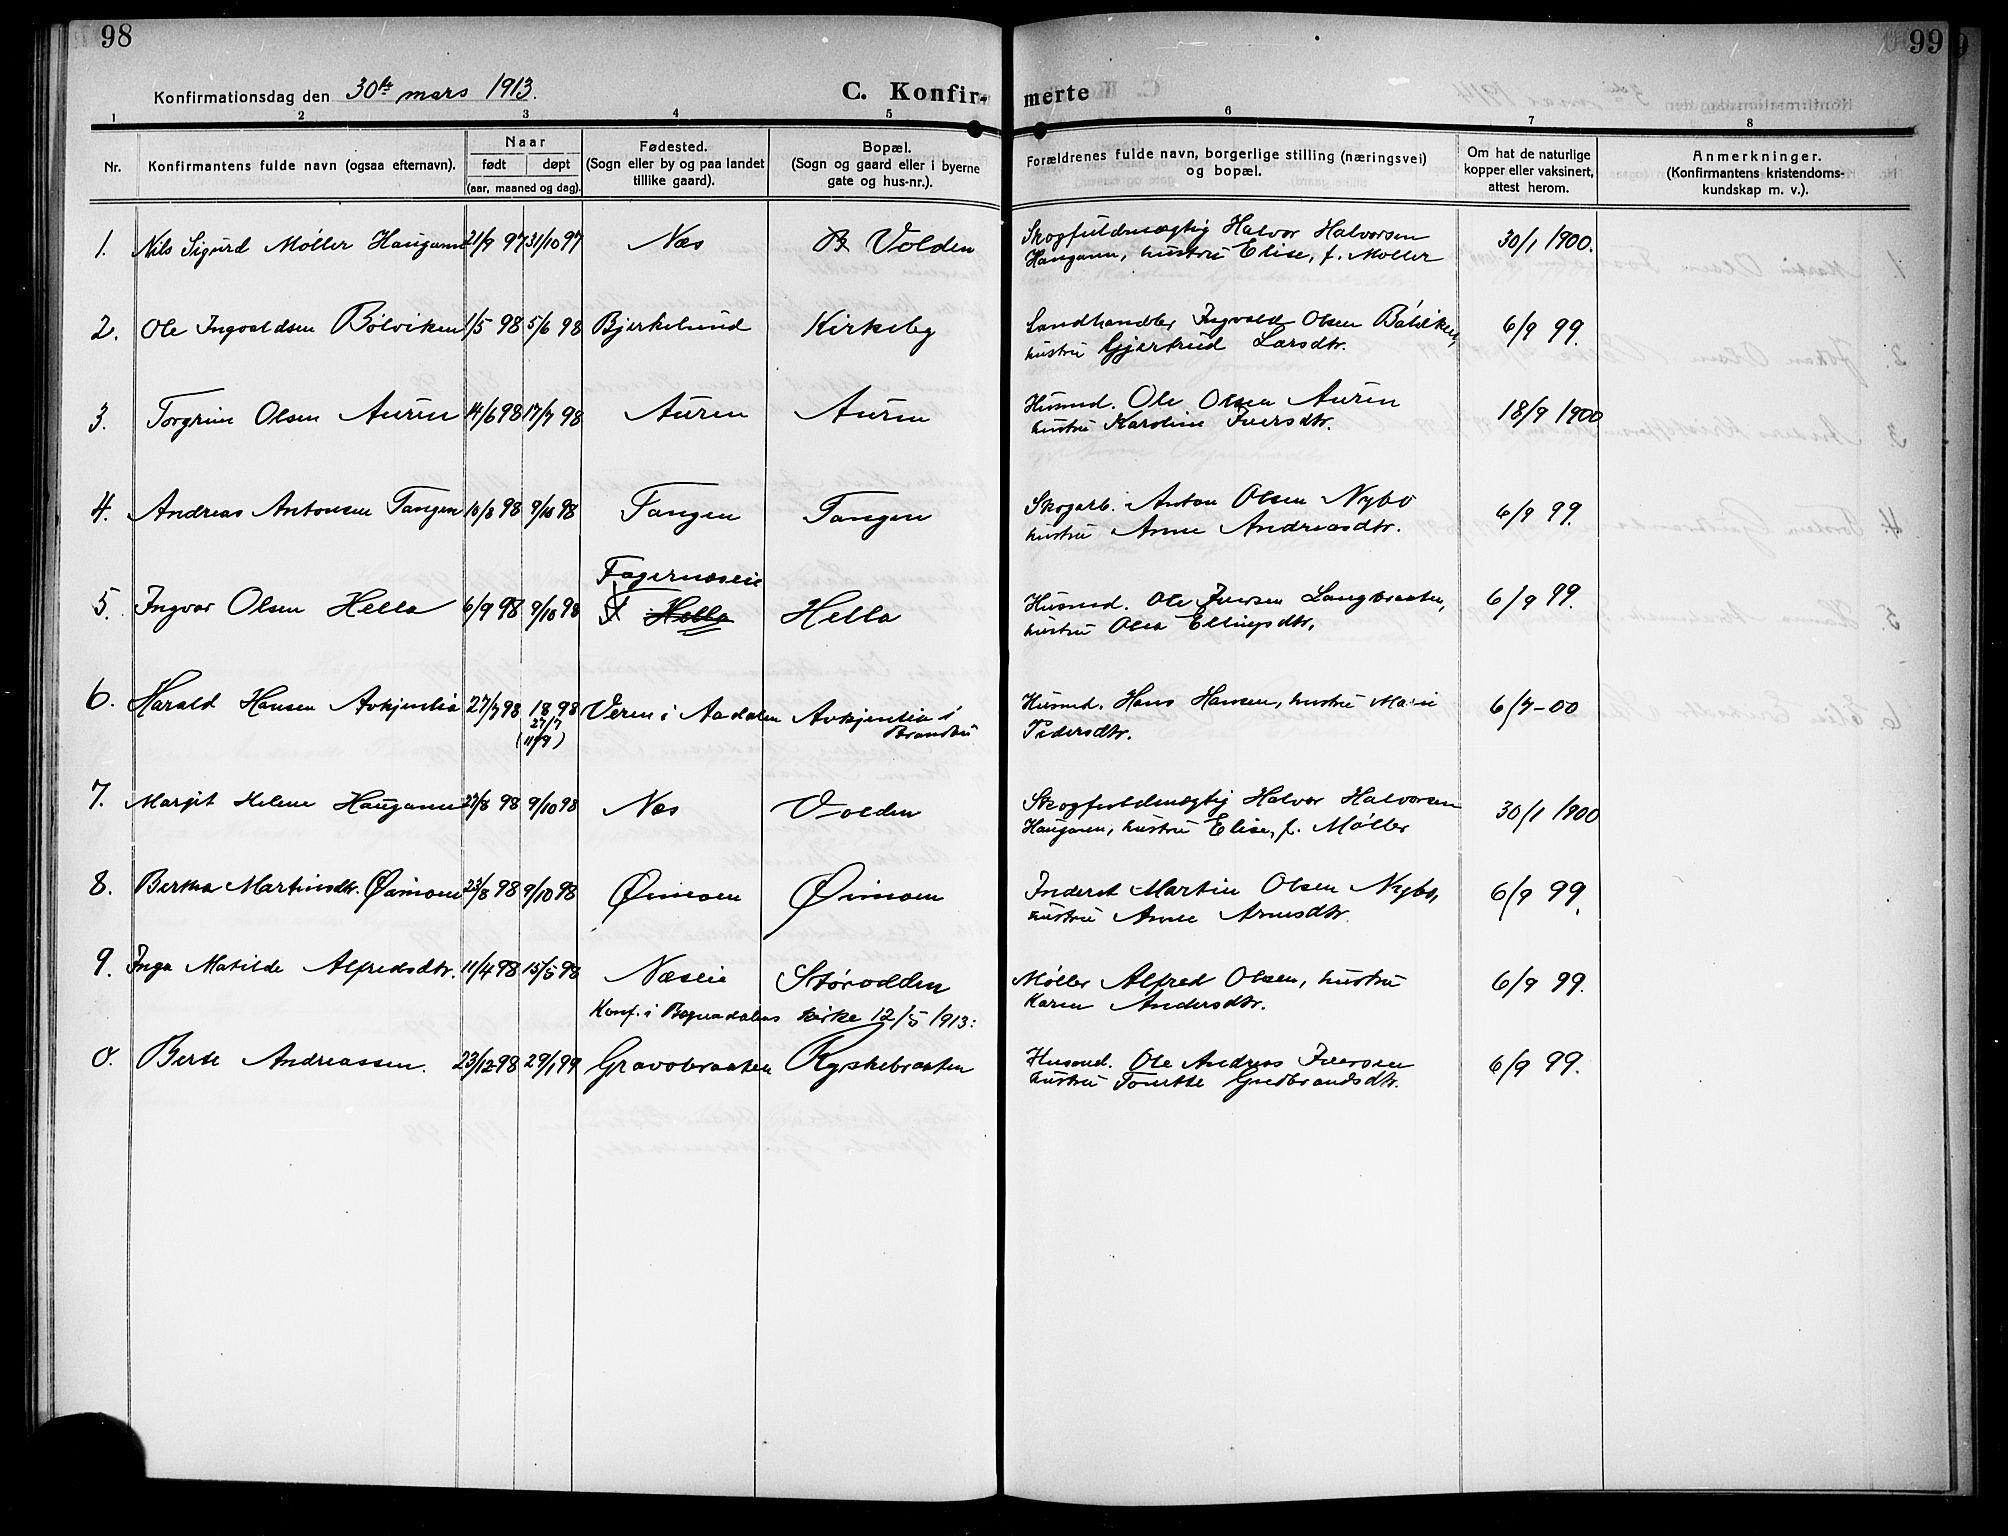 98
99
Konfirmationsdag den 30te mars 1913.
C. Konfir-
merte
1 2 3 4 5 6 7 8
Nr.
Konfirmantens fulde navn (ogsaa efternavn).
Naar
født døpt
(aar, maaned og dag).
Fødested.
(Sogn eller by og paa landet
tillike gaard).
Bopæl.
(Sogn og gaard eller i byerne
gate og hus-nr.).
Forældrenes fulde navn, borgerlige stilling (næringsvei)
og bopæl.
Om hat de naturlige
kopper eller vaksinert,
attest herom.
Anmerkninger.
(Konfirmantens kristendoms-
kundskap m. v.).
1. Nils Sigurd Møller Haugann 21/9 97 31/10 97 Næs Volden Skogfuldmægtig Halvor Halvorsen 30/1 1900.
Haugann, hustru Elise, f. Møller
2. Ole Ingvaldsen Bølviken 1/5 98 5/6 98 Bjerkelund Kirkeby Landhandler Ingvald Olsen Bølviken, 6/9 99.
hustru Gjertrud Larsdtr.
3. Torgrim Olsen Auren 14/6 98 17/7 98 Auren Auren Husmd. Ole Olsen Auren 18/9 1900
hustru Karoline Iversdtr.
4. Andreas Antonsen Tangen 10/8 98 9/10 98 Tangen Tangen Skogarb. Anton Olsen Nybo 6/9 99.
hustru Anne Andreasdtr.
Fagernæseie
5. Ingvar Olsen Hella 6/9 98 9/10 98 Hella Hella Husmd. Ole Iversen Langbraaten, 6/9 99.
hustru Olea Ellingsdtr.
6. Harald Hansen Avkjernlia 27/7 98 18 98 Veren i Aadalen Avkjernlia i Husmd. Hans Hansen, hustru Marie 6/7-00
27/7
(11/9)
Brandbu
Pedersdtr.
7. Margit Helene Haugann 27/8 98 9/10 98 Næs Volden Skogfuldmægtig Halvor Halvorsen 30/1 1900
Haugann, hustru Elise, f. Møller
8. Bertha Martinsdtr. Øimoen 23/8 98 9/10 98 Øimoen Øimoen Inderst Martin Olsen Nybo, 6/9 99.
hustru Anne Arnesdtr.
9. Inga Matilde Alfredsdtr. 11/4 98 15/5 98 Næseie Størodden Møller Alfred Olsen, hustru 6/9 99.
Karen Andersdtr.
Konf. i Begnadalens kirke 12/5 1913:
0. Berte Andreassen. 23/12 98 29/1 99 Gravobraaten Ryskebraaten Husmd. Ole Andreas Iversen 6/9 99.
hustru Tonette Gudbrandsdtr.